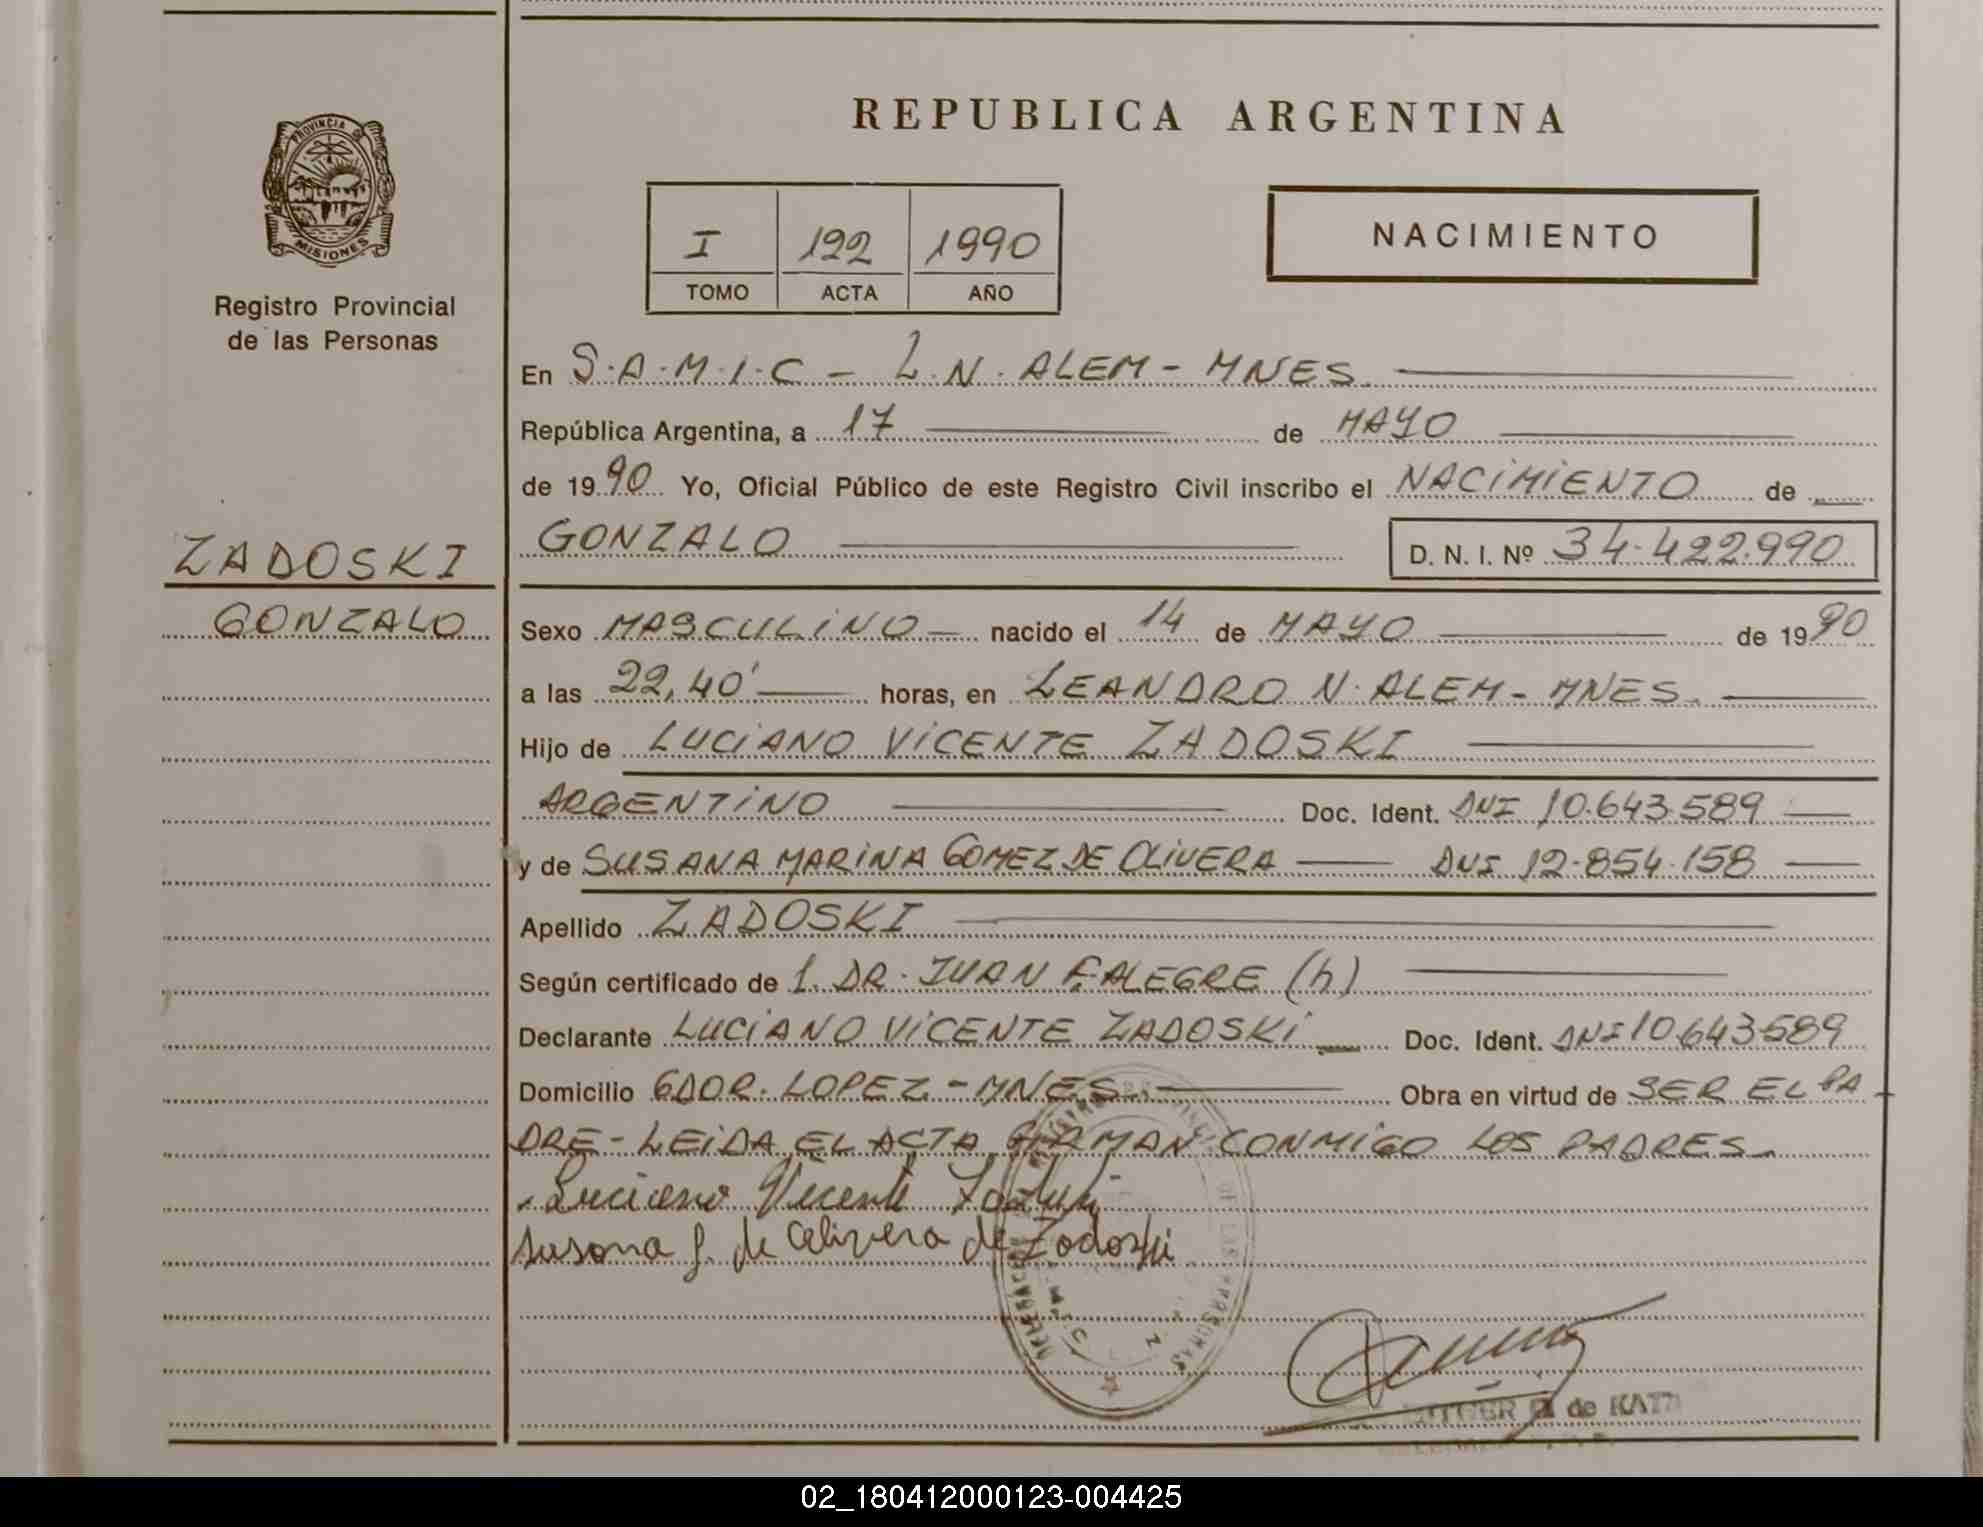 PROVINCIA DE
MISIONES
Registro Provincial
de las Personas
ZADOSKI
GONZALO
REPUBLICA ARGENTINA
I 122 1990
TOMO ACTA AÑO
NACIMIENTO
En S.A.M.I.C - L.N. ALEM - MNES.
República Argentina, a 17 de MAYO
de 1990 Yo, Oficial Público de este Registro Civil inscribo el NACIMIENTO de
GONZALO D. N. I. Nº 34.422.990
Sexo MASCULINO nacido el 14 de MAYO de 1990
a las 22,40' horas, en LEANDRO N. ALEM - MNES.
Hijo de LUCIANO VICENTE ZADOSKI
ARGENTINO Doc. Ident. DNI 10.643.589
y de SUSANA MARINA GOMEZ DE OLIVERA DNI 12.854.158
Apellido ZADOSKI
Según certificado de 1. DR. JUAN F. ALEGRE (h)
Declarante LUCIANO VICENTE ZADOSKI Doc. Ident. DNI 10.643.589
Domicilio GDOR. LOPEZ - MNES. Obra en virtud de SER EL PA
DRE - LEIDA EL ACTA FIRMAN CONMIGO LOS PADRES.
Luciano Vicente Zadoski
Susana G. de Olivera de Zadoski
DE LAS PERSONAS
de KATZ
02_180412000123-004425